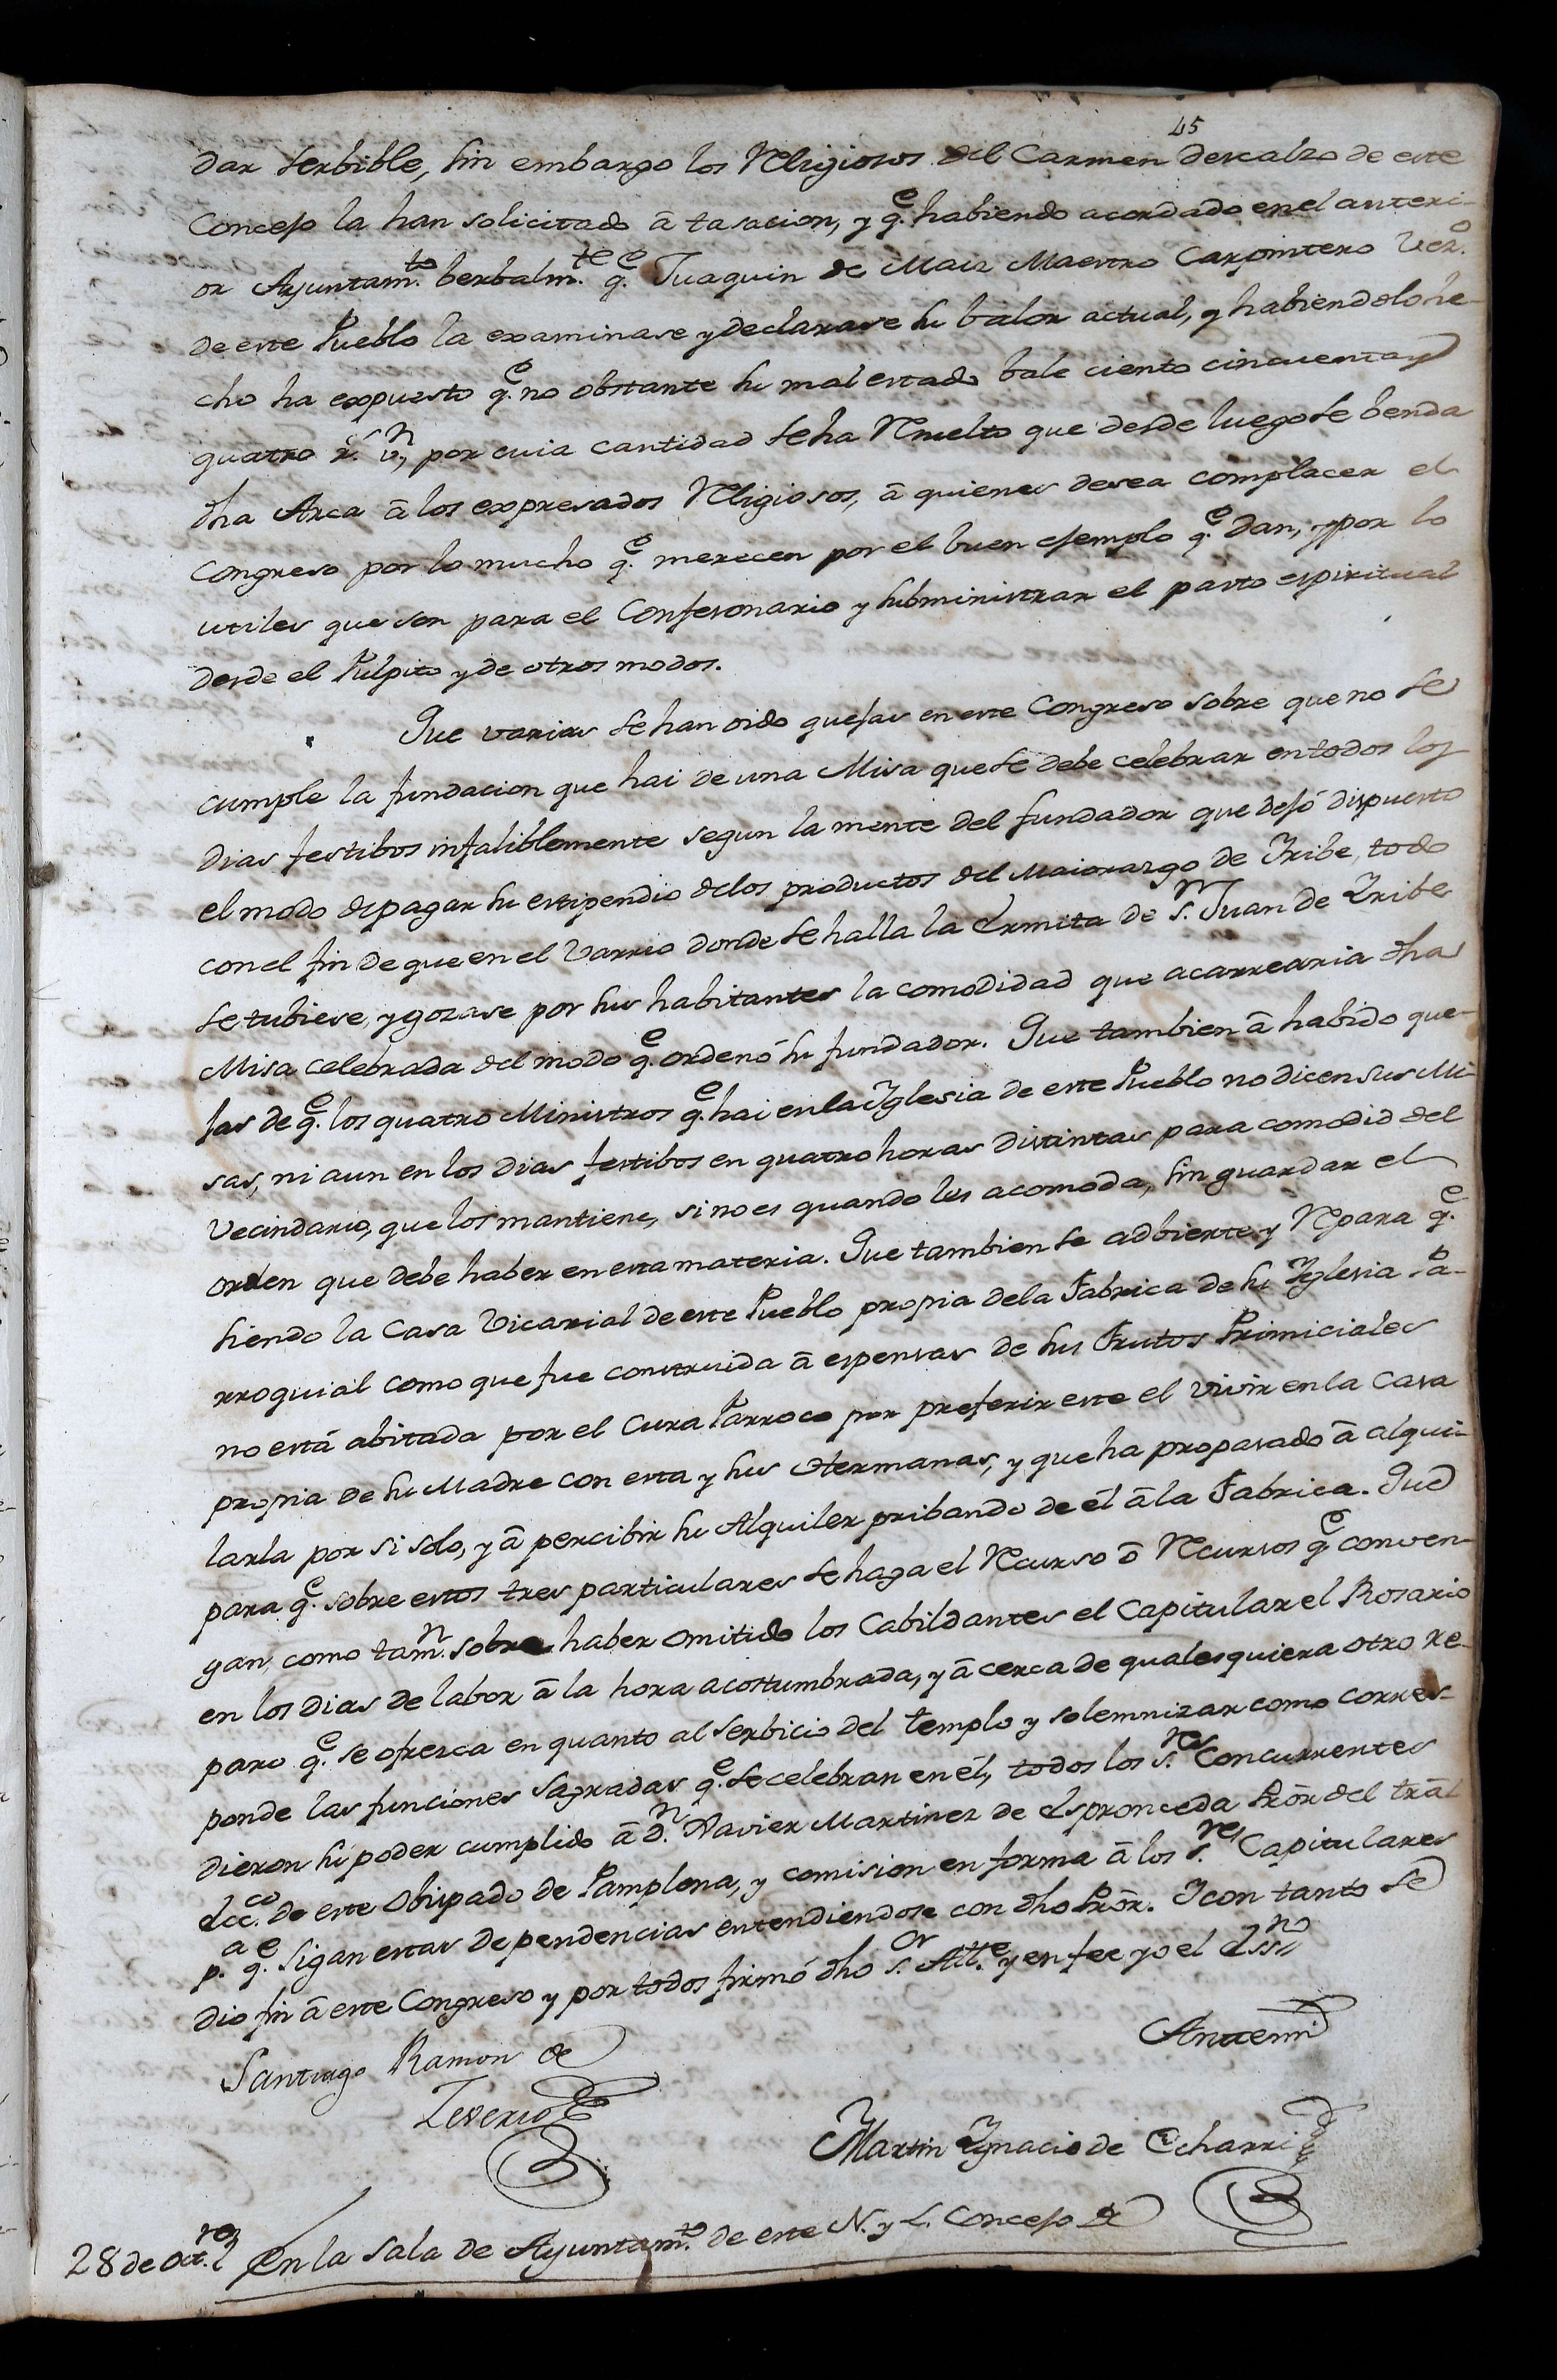 45
dar serbible, sin embargo los Religiosos del Carmen descalzo de este
Concejo la han solicitado â tasacion, y q.e habiendo acordado en el anteri-
or Ayuntam.to berbalm.te q.e Juaquin de Maiz Maestro Carpintero Vez.o
de este Pueblo la examinase y declarase su balor actual, y habiendolo he-
cho ha expuesto q.e no obstante su mal estado bale ciento cincuenta y
quatro r.s v.n, por cuia cantidad se ha Resuelto que desde luego se benda
dha Arca â los expresados Religiosos, â quienes desea complacer el
Congreso por lo mucho q.e merecen por el buen ejemplo q.e dan, y por lo
utiles que son para el Confesonario y subministrar el pasto espiritual
desde el Pulpito y de otros modos.
Que varias se han oido quejas en este Congreso sobre que no se
cumple la fundacion que hai de una Misa que se debe celebrar en todos los
dias festibos infaliblemente segun la mente del fundador que dejó dispuesto
el modo de pagar su estipendio de los productos del Maiorazgo de Iribe, todo
con el fin de que en el Varrio donde se halla la Ermita de S.n Juan de Iribe
se tubiese, y gozase por sus habitantes la comodidad que acarrearia dha
Misa celebrada del modo q.e ordenó su fundador. Que tambien â habido que-
jas de q.e los quatro Ministros q.e hai en la Yglesia de este Pueblo no dicen sus Mi-
sas, ni aun en los dias festibos en quatro horas distintas para comodid del
Vecindario, que los mantiene, si no es quando les acomoda, sin guardar el
orden que debe haber en esta materia. Que tambien se adbierte y Repara q.e
siendo la Casa Vicarial de este Pueblo propia de la Fabrica de su Yglesia Pa-
rroquial como que fue construida â espensas de sus Frutos Primiciales
no está abitada por el Cura Parroco por preferir este el vivir en la Casa
propia de su Madre con esta y sus Hermanas, y que ha propasado â alqui-
larla por si solo, y â percibir su Alquiler pribando de él â la Fabrica. Que
para q.e sobre estos tres particulares se haga el Recurso ô Recursos q.e conven-
gan, como tam.n sobre haber omitido los Cabildantes el Capitular el Rosario
en los dias de labor â la hora acostumbrada, y âcerca de qualesquiera otro re-
paro q.e se ofresca en quanto al serbicio del templo y solemnizar como corres-
ponde las funciones sagradas q.e se celebran en él, todos los S.res Concurrentes
dieron su poder cumplido â D.n Xavier Martinez de Espronceda Prôr del trâl
Ecc.co de este Obispado de Pamplona, y comision en forma â los S.res Capitulares
p.a q.e sigan estas dependencias entendiendose con dho Prôr. Y con tanto se
dio fin â este Congreso y por todos firmó dho S.or Alt.e y en fee yo el Ess.no
Santiago Ramon de
Antemi
Martin Ygnacio de Echarri
28 de Oct.re En la Sala de Ayuntam.to de este N. y L. Concejo de